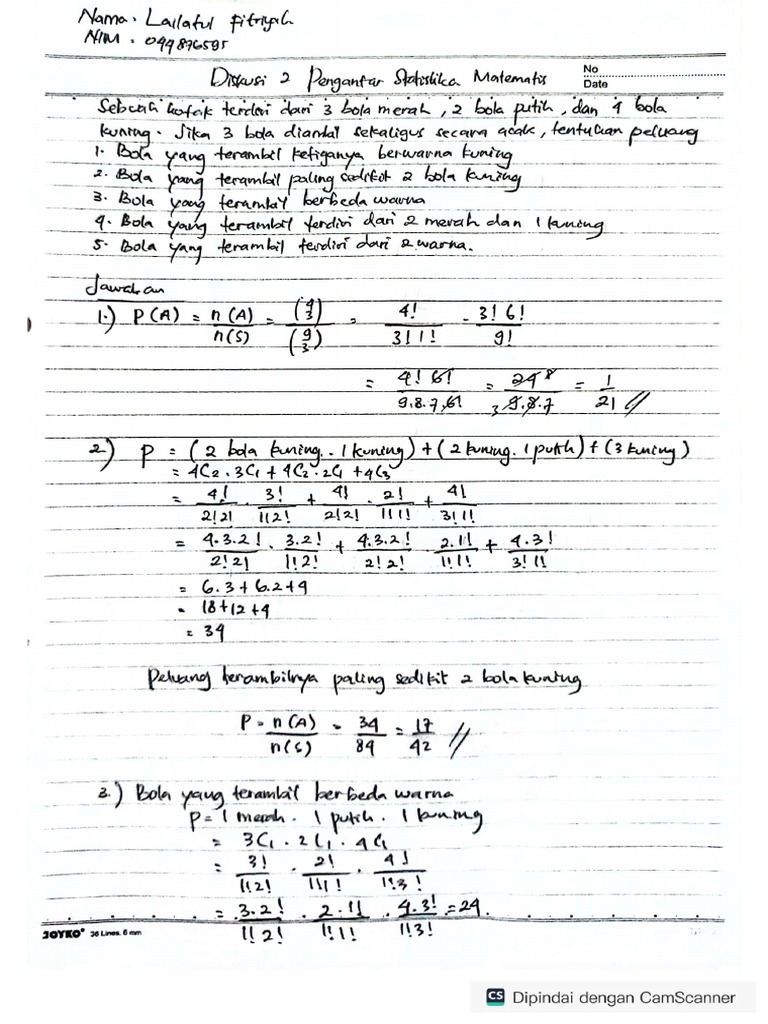 Nama. Lailatul Fitriyah
NIM. 049876595
Diskusi 2 Pengantar Statistika Matematis
No
Date
Sebuah kotak terdiri dari 3 bola merah, 2 bola putih, dan 4 bola
kuning. Jika 3 bola diambil sekaligus secara acak, tentukan peluang
1. Bola yang terambil ketiganya berwarna kuning
2. Bola yang terambil paling sedikit 2 bola kuning
3. Bola yang terambil berbeda warna
4. Bola yang terambil terdiri dari 2 merah dan 1 kuning
5. Bola yang terambil terdiri dari 2 warna.
Jawaban
1.) P(A) = n(A)/n(S) = (4 3)/(9 3) = 4!/3!1! . 3!6!/9!
= 4! 6!/9.8.7.6! = 24 8/3 9.8.7 = 1/21 //
2.) P = (2 bola kuning. 1 kuning) + (2 kuning. 1 putih) + (3 kuning)
= 4C2 . 3C1 + 4C2 . 2C1 + 4C3
= 4!/2!2! . 3!/1!2! + 4!/2!2! . 2!/1!1! + 4!/3!1!
= 4.3.2!/2!2! . 3.2!/1!2! + 4.3.2!/2!2! . 2.1!/1!1! + 4.3!/3!1!
= 6.3 + 6.2 + 4
= 18 + 12 + 4
= 34
Peluang terambilnya paling sedikit 2 bola kuning
P = n(A)/n(S) = 34/84 = 17/42 //
3.) Bola yang terambil berbeda warna
P = 1 merah . 1 putih . 1 kuning
= 3C1 . 2C1 . 4C1
= 3!/1!2! . 2!/1!1! . 4!/1!3!
= 3.2!/1!2! . 2.1!/1!1! . 4.3!/1!3! = 24.
JOYKO 36 Lines. 6 mm
CS Dipindai dengan CamScanner